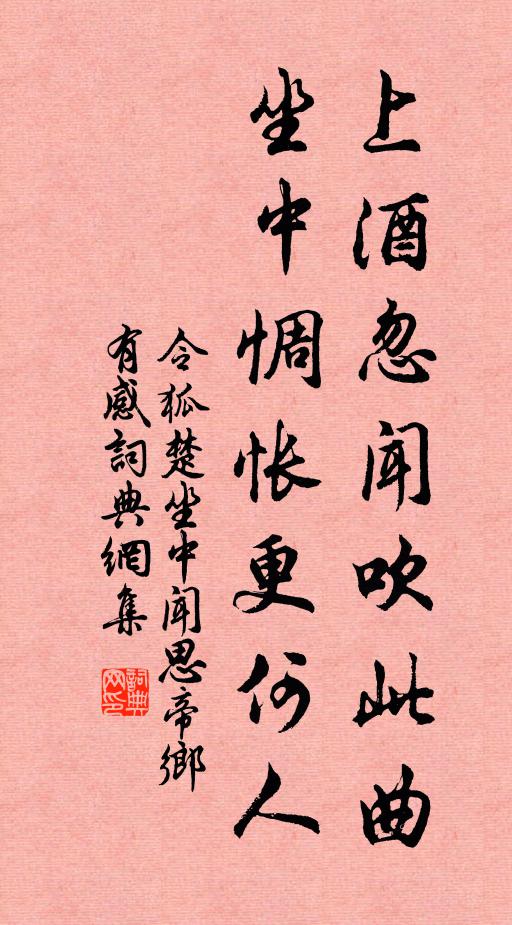 上酒忽闻吹此曲
坐中惆怅更何人
令狐楚坐中闻思帝鄉
有感詞典網集
詞典網印